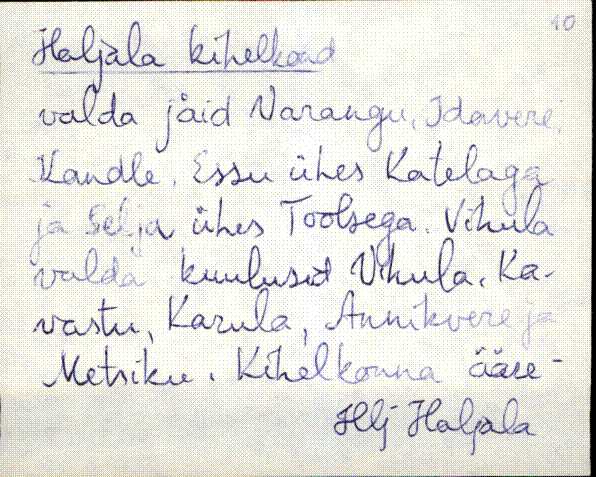 10
Haljala kihelkond
valda jäid Varangu, Idavere,
Kandle, Essu ühes Katelaga
ja Selja ühes Toolsega. Vihula
valda kuulusid Vihula, Ka-
vastu, Karula, Annikvere ja
Metsiku. Kihelkonna ääre-
Hlj Haljala